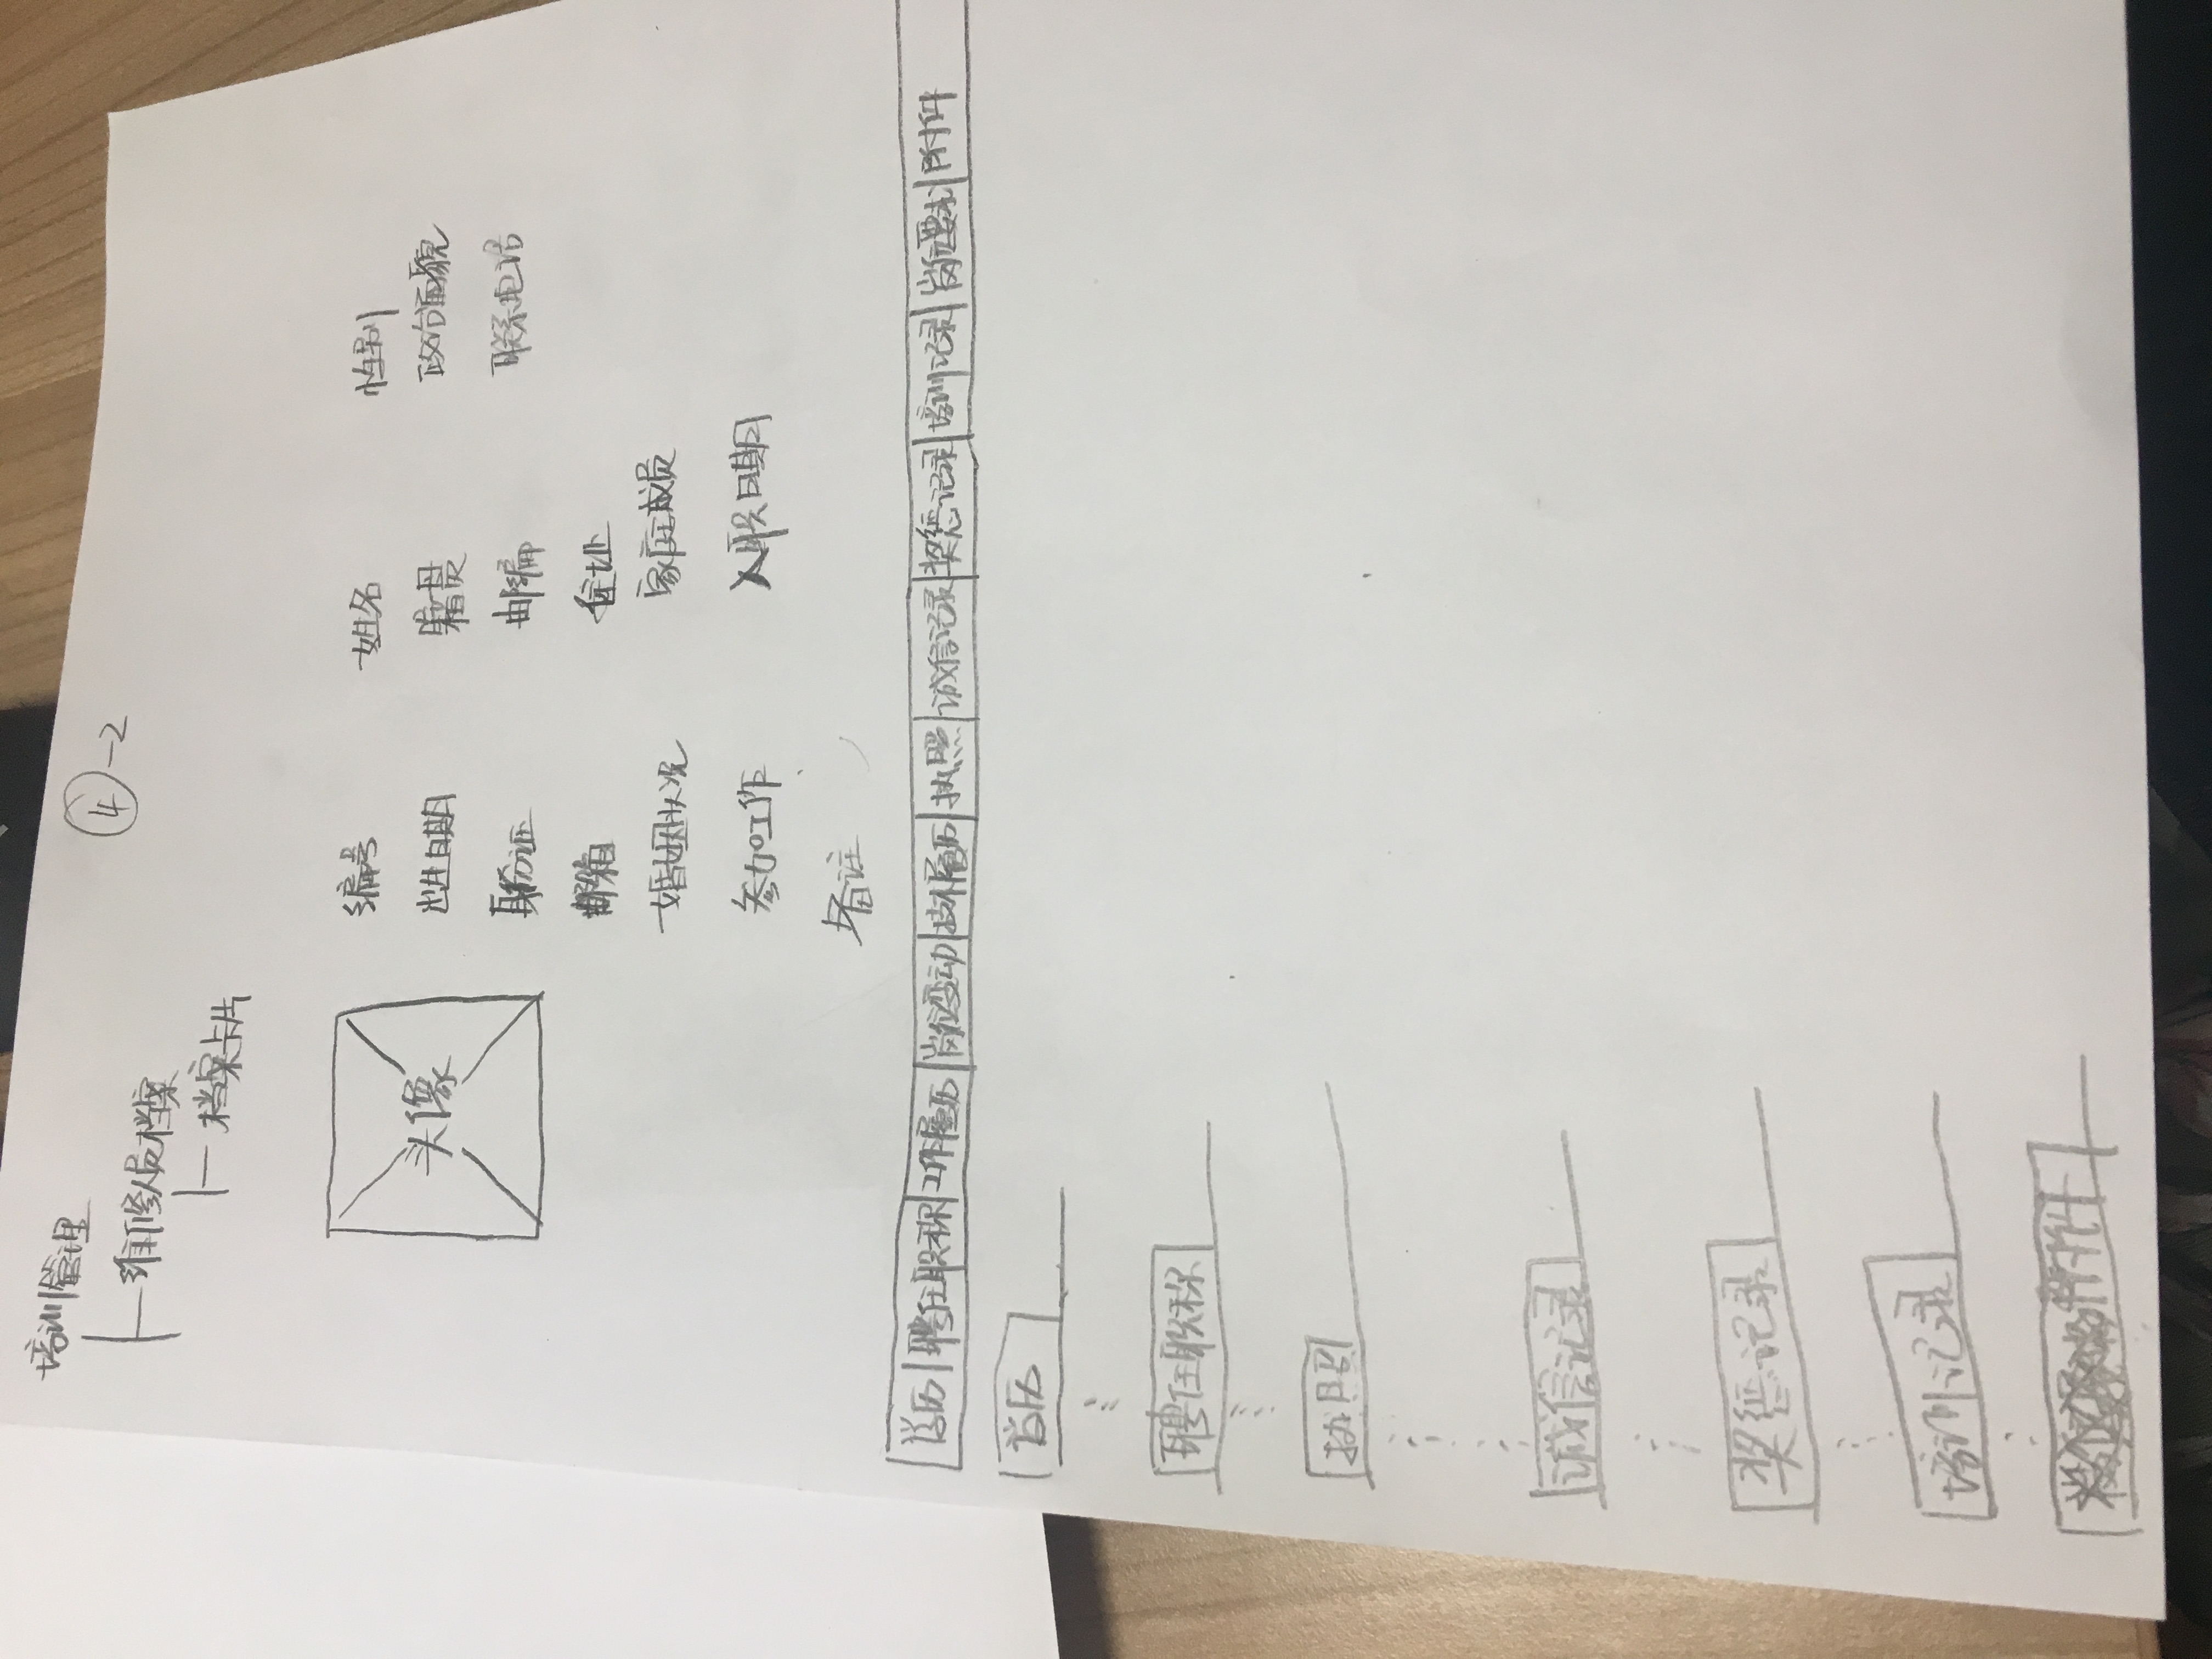 培训管理
④-2
维修人员档案
档案卡片
头像
编号 姓名 性别
出生日期 籍贯 政治面貌
身份证 邮编 联系电话
邮箱 住址
婚姻状况 家庭成员
参加工作 入职日期
备注
学历 聘任职称 工作履历 岗位变动 技术履历 执照 诚信记录 奖惩记录 培训记录 岗位要求 附件
学历
聘任职称
执照
诚信记录
奖惩记录
培训记录
附件